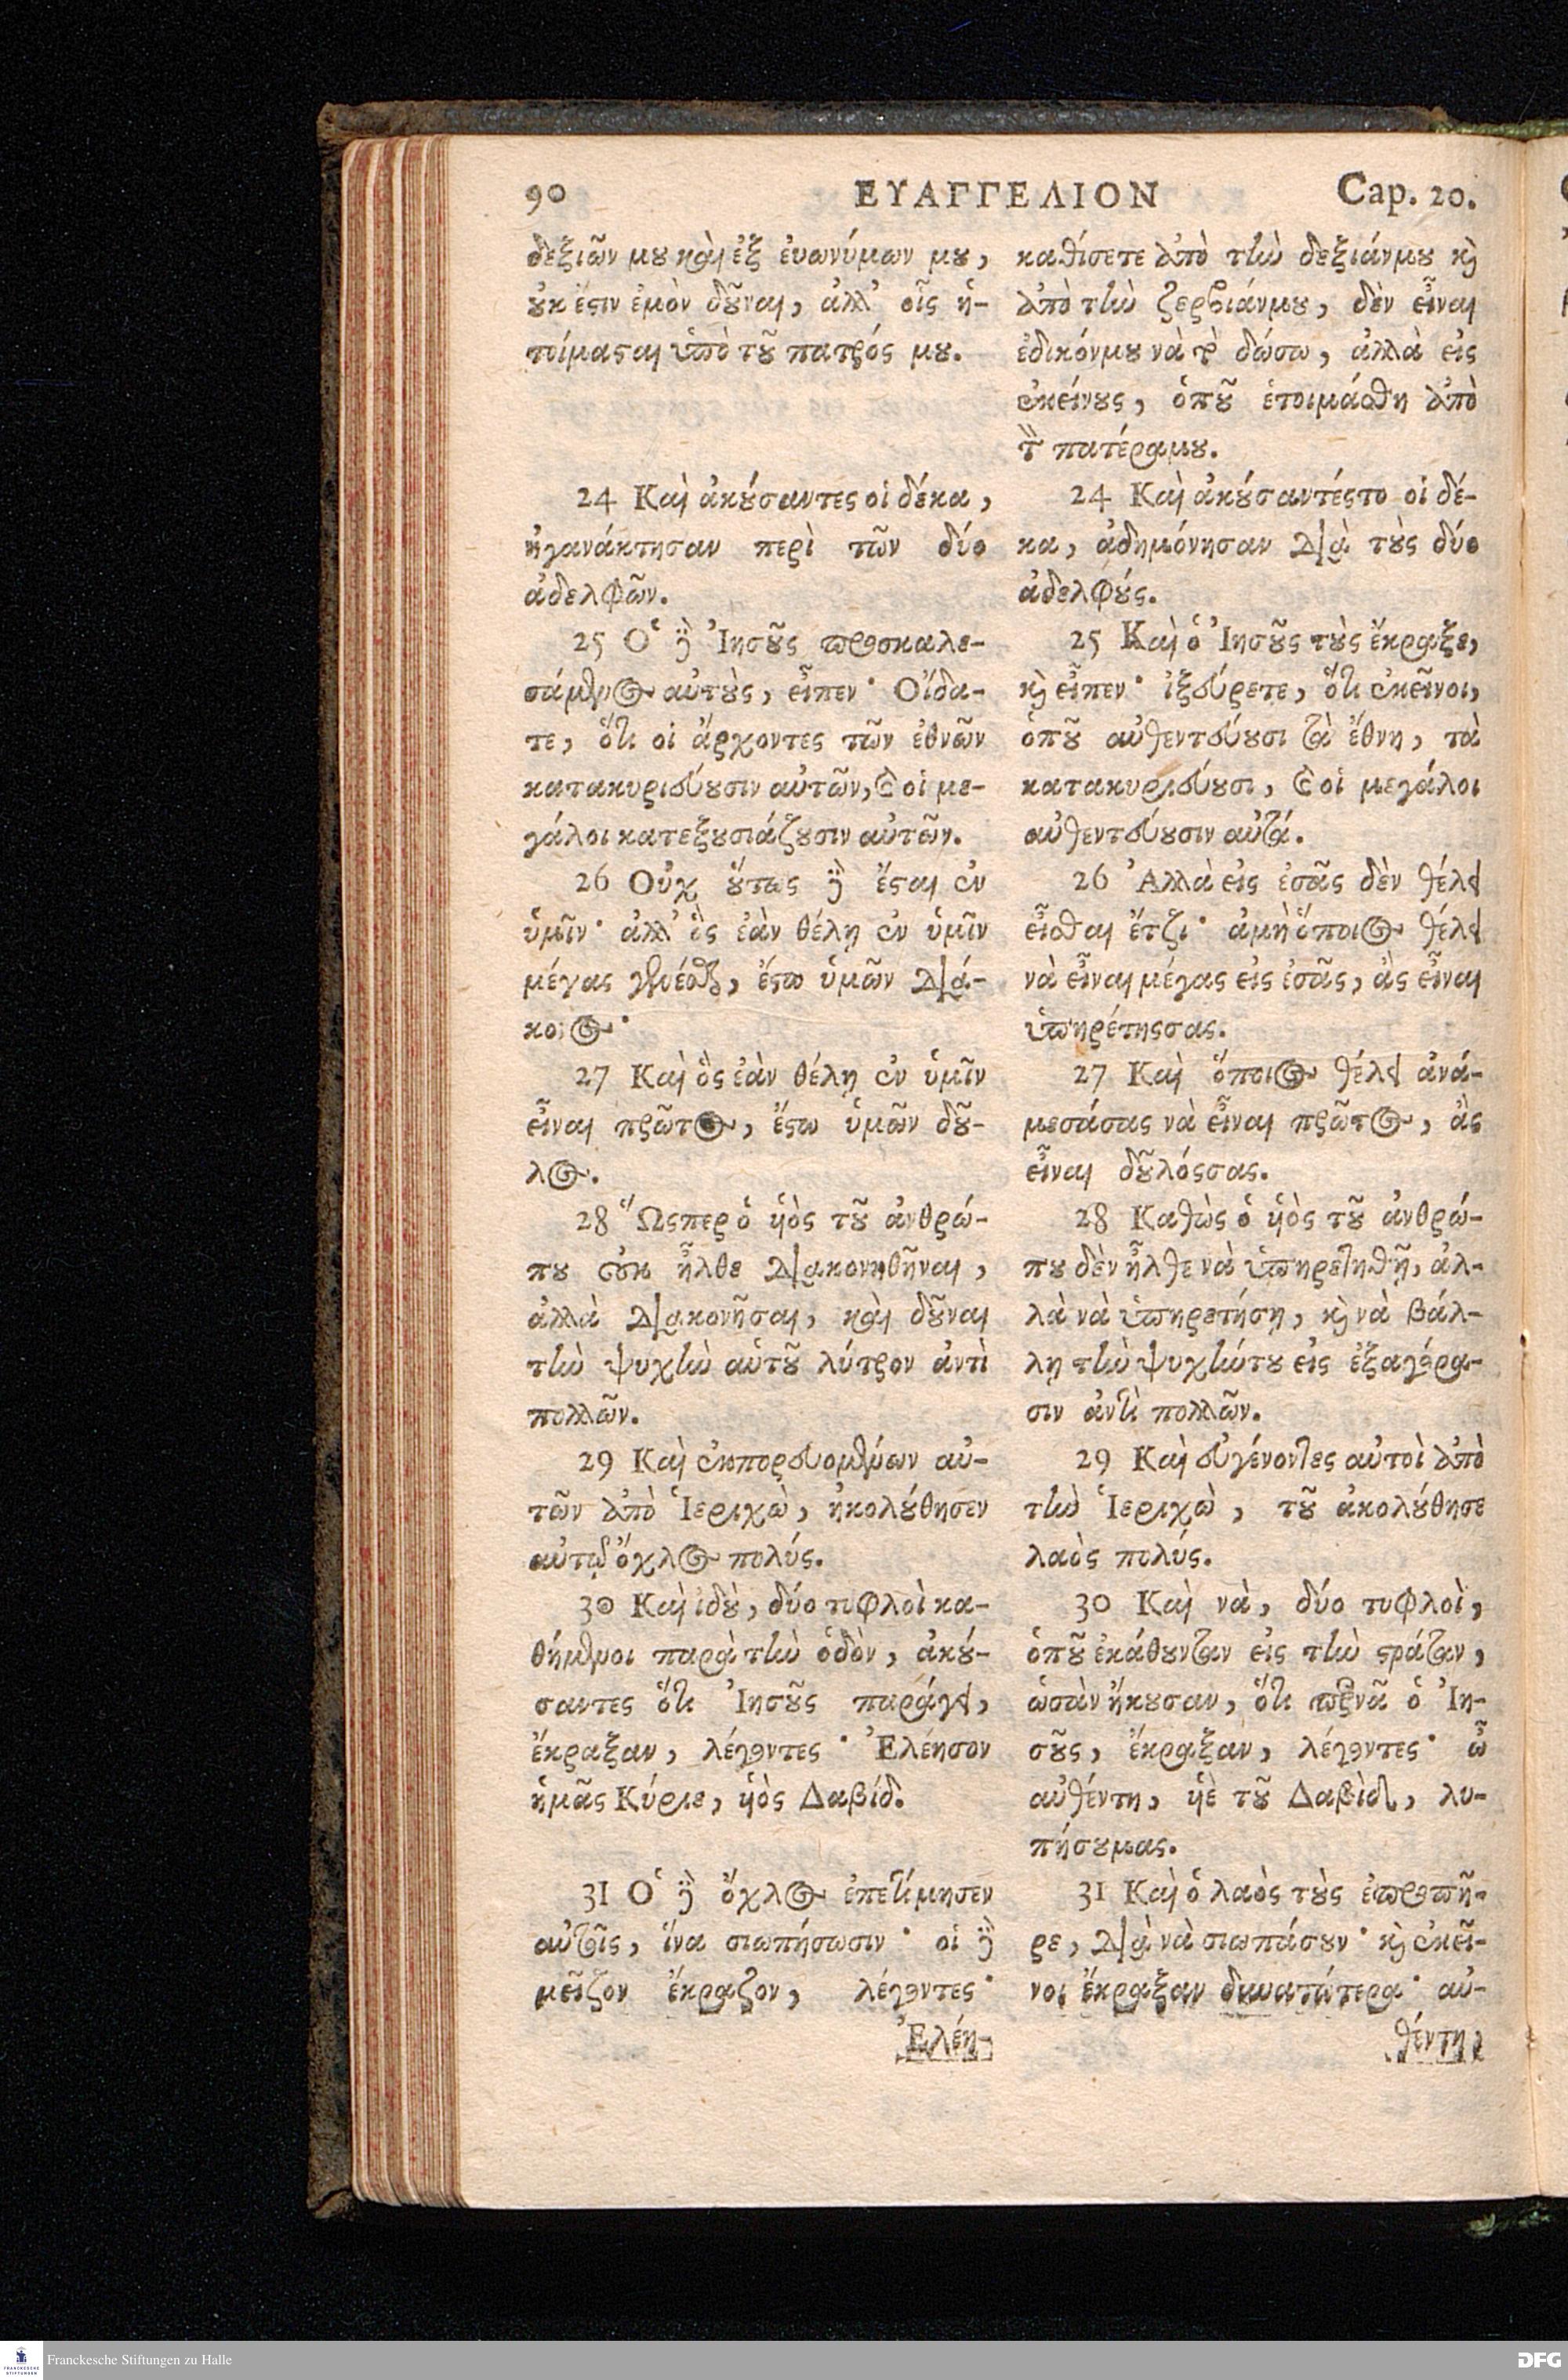 90 ΕΥΑΓΓΕΛΙΟΝ Cap. 20.
δεξιῶν μȣ καὶ ἐξ ἐυωνύμων μȣ,
ȣ̓κ ἔϛιν ἐμὸν δȣ͂ναι, ἀλλ' οἷς ἡ-
τοίμαϛαι ὑπὸ τȣ͂ πατρός μȣ.
24 Καὶ ἀκȣ́σαντες οἱ δέκα,
ἠγανάκτησαν περὶ τῶν δύο
ἀδελφῶν.
25 Ὁ δὲ Ἰησȣ͂ς προσκαλε-
σάμενος αὐτȣ̀ς, εἶπεν· Οἴδα-
τε, ὅτι οἱ ἄρχοντες τῶν ἐθνῶν
κατακυριεύȣσιν αὐτῶν, καὶ οἱ με-
γάλοι κατεξȣσιάζȣσιν αὐτῶν.
26 Οὐχ ȣ̔́τως δὲ ἔϛαι ἐν
ὑμῖν· ἀλλ' ὃς ἐὰν θέλῃ ἐν ὑμῖν
μέγας γενέσθαι, ἔϛω ὑμῶν διά-
κονος·
27 Καὶ ὃς ἐὰν θέλῃ ἐν ὑμῖν
εἶναι πρῶτος, ἔϛω ὑμῶν δȣ͂-
λος.
28 Ὥςπερ ὁ ὑιὸς τȣ͂ ἀνθρώ-
πȣ οὐκ ἦλθε διακονηθῆναι,
ἀλλὰ διακονῆσαι, καὶ δȣ͂ναι
τὴν ψυχὴν αὑτȣ͂ λύτρον ἀντὶ
πολλῶν.
29 Καὶ ἐκπορευομένων αὐ-
τῶν ἀπὸ Ἱεριχὼ, ἠκολȣ́θησεν
αὐτῷ ὄχλος πολύς.
30 Καὶ ἰδȣ̀, δύο τυφλοὶ κα-
θήμενοι παρὰ τὴν ὁδὸν, ἀκȣ́-
σαντες ὅτι Ἰησȣ͂ς παράγει,
ἔκραξαν, λέγοντες· Ἐλέησον
ἡμᾶς Κύριε, ὑιὸς Δαβίδ.
31 Ὁ δὲ ὄχλος ἐπετίμησεν
αὐτοῖς, ἵνα σιωπήσωσιν· οἱ δὲ
μεῖζον ἔκραζον, λέγοντες·
Ἐλέη-
καθίσετε ἀπὸ τὴν δεξιάνμȣ καὶ
ἀπὸ τὴν ζερβιάνμȣ, δὲν εἶναι
ἐδικόνμȣ νὰ τὸ δώσω, ἀλλὰ εἰς
ἐκείνȣς, ὁπȣ͂ ἑτοιμάσθη ἀπὸ
τὸν πατέραμȣ.
24 Καὶ ἀκȣ́σαντέςτο οἱ δέ-
κα, ἀδημόνησαν διὰ τȣ̀ς δύο
ἀδελφȣ́ς.
25 Καὶ ὁ Ἰησȣ͂ς τȣ̀ς ἔκραξε,
καὶ εἶπεν· ἰξεύρετε, ὅτι ἐκεῖνοι,
ὁπȣ͂ αὐθεντεύȣσι τὰ ἔθνη, τὰ
κατακυριεύȣσι, καὶ οἱ μεγάλοι
αὐθεντεύȣσιν αὐτά.
26 Ἀλλὰ εἰς ἐσᾶς δὲν θέλει
εἶσθαι ἔτζι· ἀμὴ ὅποιος θέλει
νὰ εἶναι μέγας εἰς ἐσᾶς, ἂς εἶναι
ὑπηρέτηςσας.
27 Καὶ ὅποιος θέλει ἀνά-
μεσάσας νὰ εἶναι πρῶτος, ἂς
εἶναι δȣ͂λόςσας.
28 Καθὼς ὁ ὑιὸς τȣ͂ ἀνθρώ-
πȣ δὲν ἦλθε νὰ ὑπηρετηθῇ, ἀλ-
λὰ νὰ ὑπηρετήσῃ, καὶ νὰ βάλ-
λῃ τὴν ψυχήντȣ εἰς ἐξαγόρα-
σιν ἀντὶ πολλῶν.
29 Καὶ εὐγένοντες αὐτοὶ ἀπὸ
τὴν Ἱεριχὼ, τȣ͂ ἀκολȣ́θησε
λαὸς πολύς.
30 Καὶ νὰ, δύο τυφλοὶ,
ὁπȣ͂ ἐκάθȣνταν εἰς τὴν ϛράταν,
ὡσὰν ἤκȣσαν, ὅτι περνᾶ ὁ Ἰη-
σȣ͂ς, ἔκραξαν, λέγοντες· ὦ
αὐθέντη, ὑιὲ τȣ͂ Δαβὶδ, λυ-
πήσȣμας.
31 Καὶ ὁ λαὸς τȣ̀ς ἐπροπῆ-
ρε, διὰ νὰ σιωπάσȣν· καὶ ἐκεῖ-
νοι ἔκραξαν δυνατώτερα· αὐ-
θέντη,
Franckesche Stiftungen zu Halle
DFG